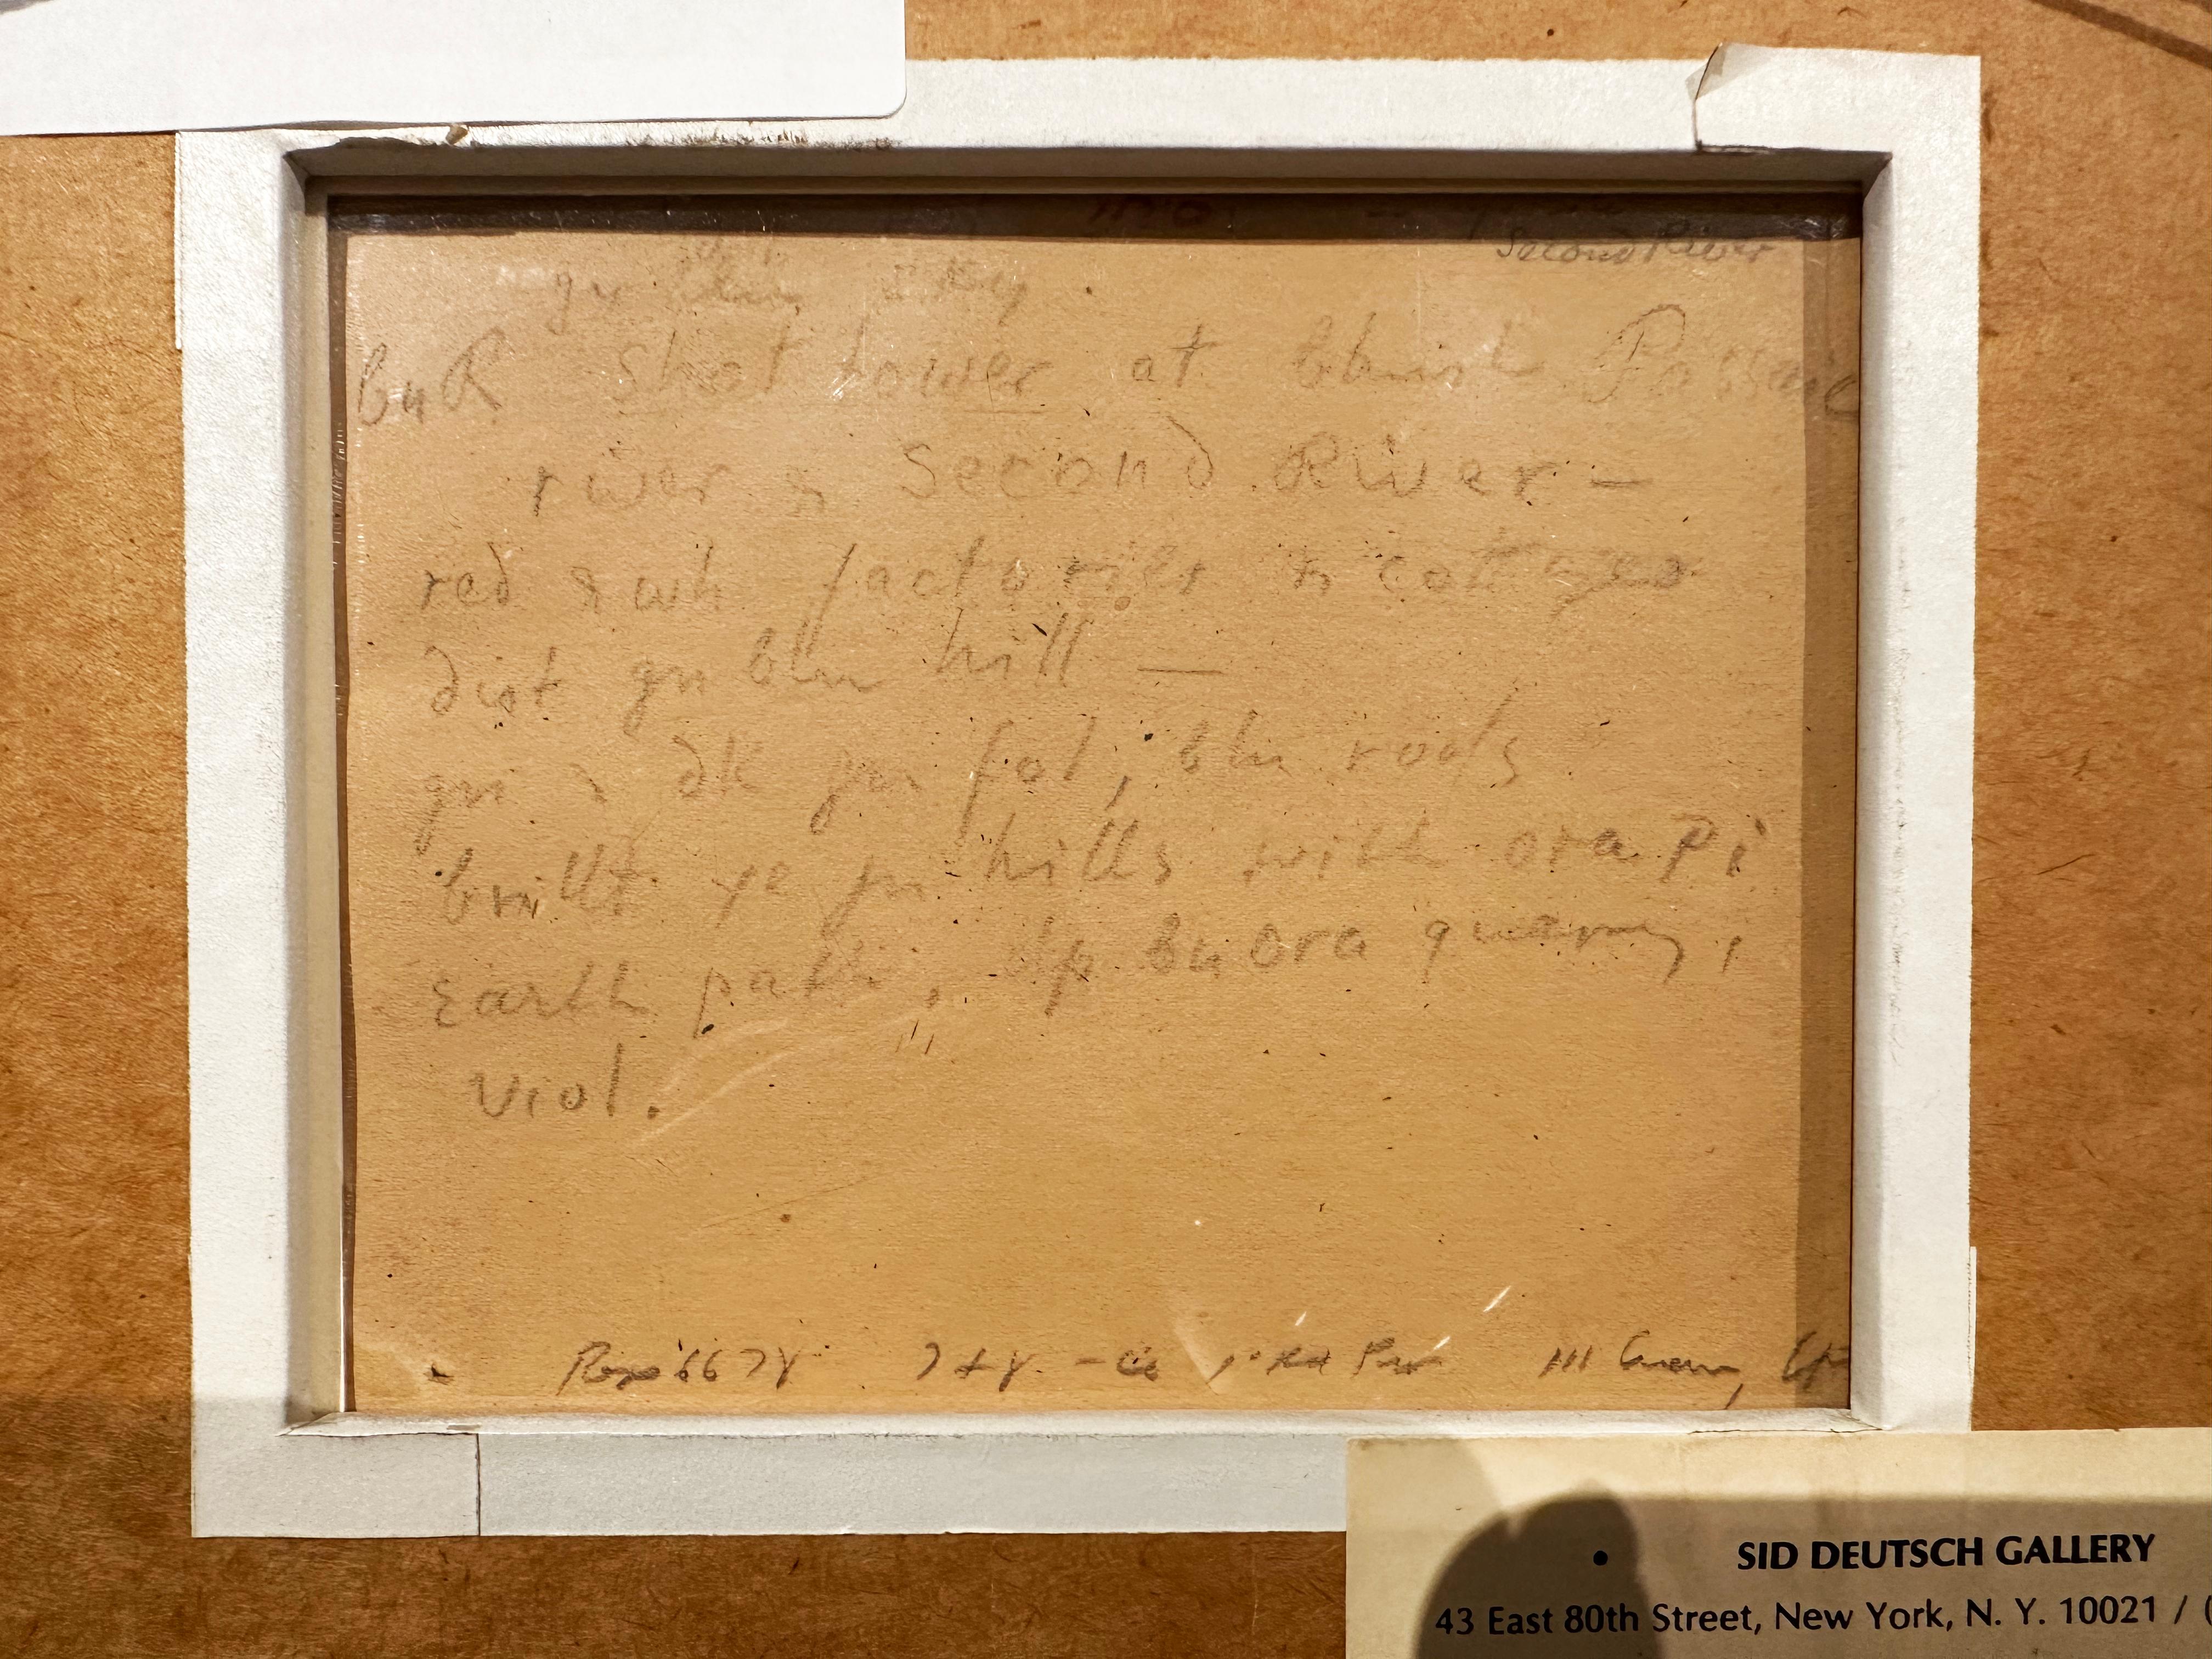 Second River
gr
bu R shot tower at bluish Passaic
river & Second River —
red & wh factories & cottages
dist gn blu hill —
gn & dk gn fol, blu roofs
brillt ye gn hills with ora Pi
Earth path, dp bu ora quarry,
viol.
SID DEUTSCH GALLERY
43 East 80th Street, New York, N. Y. 10021 / (